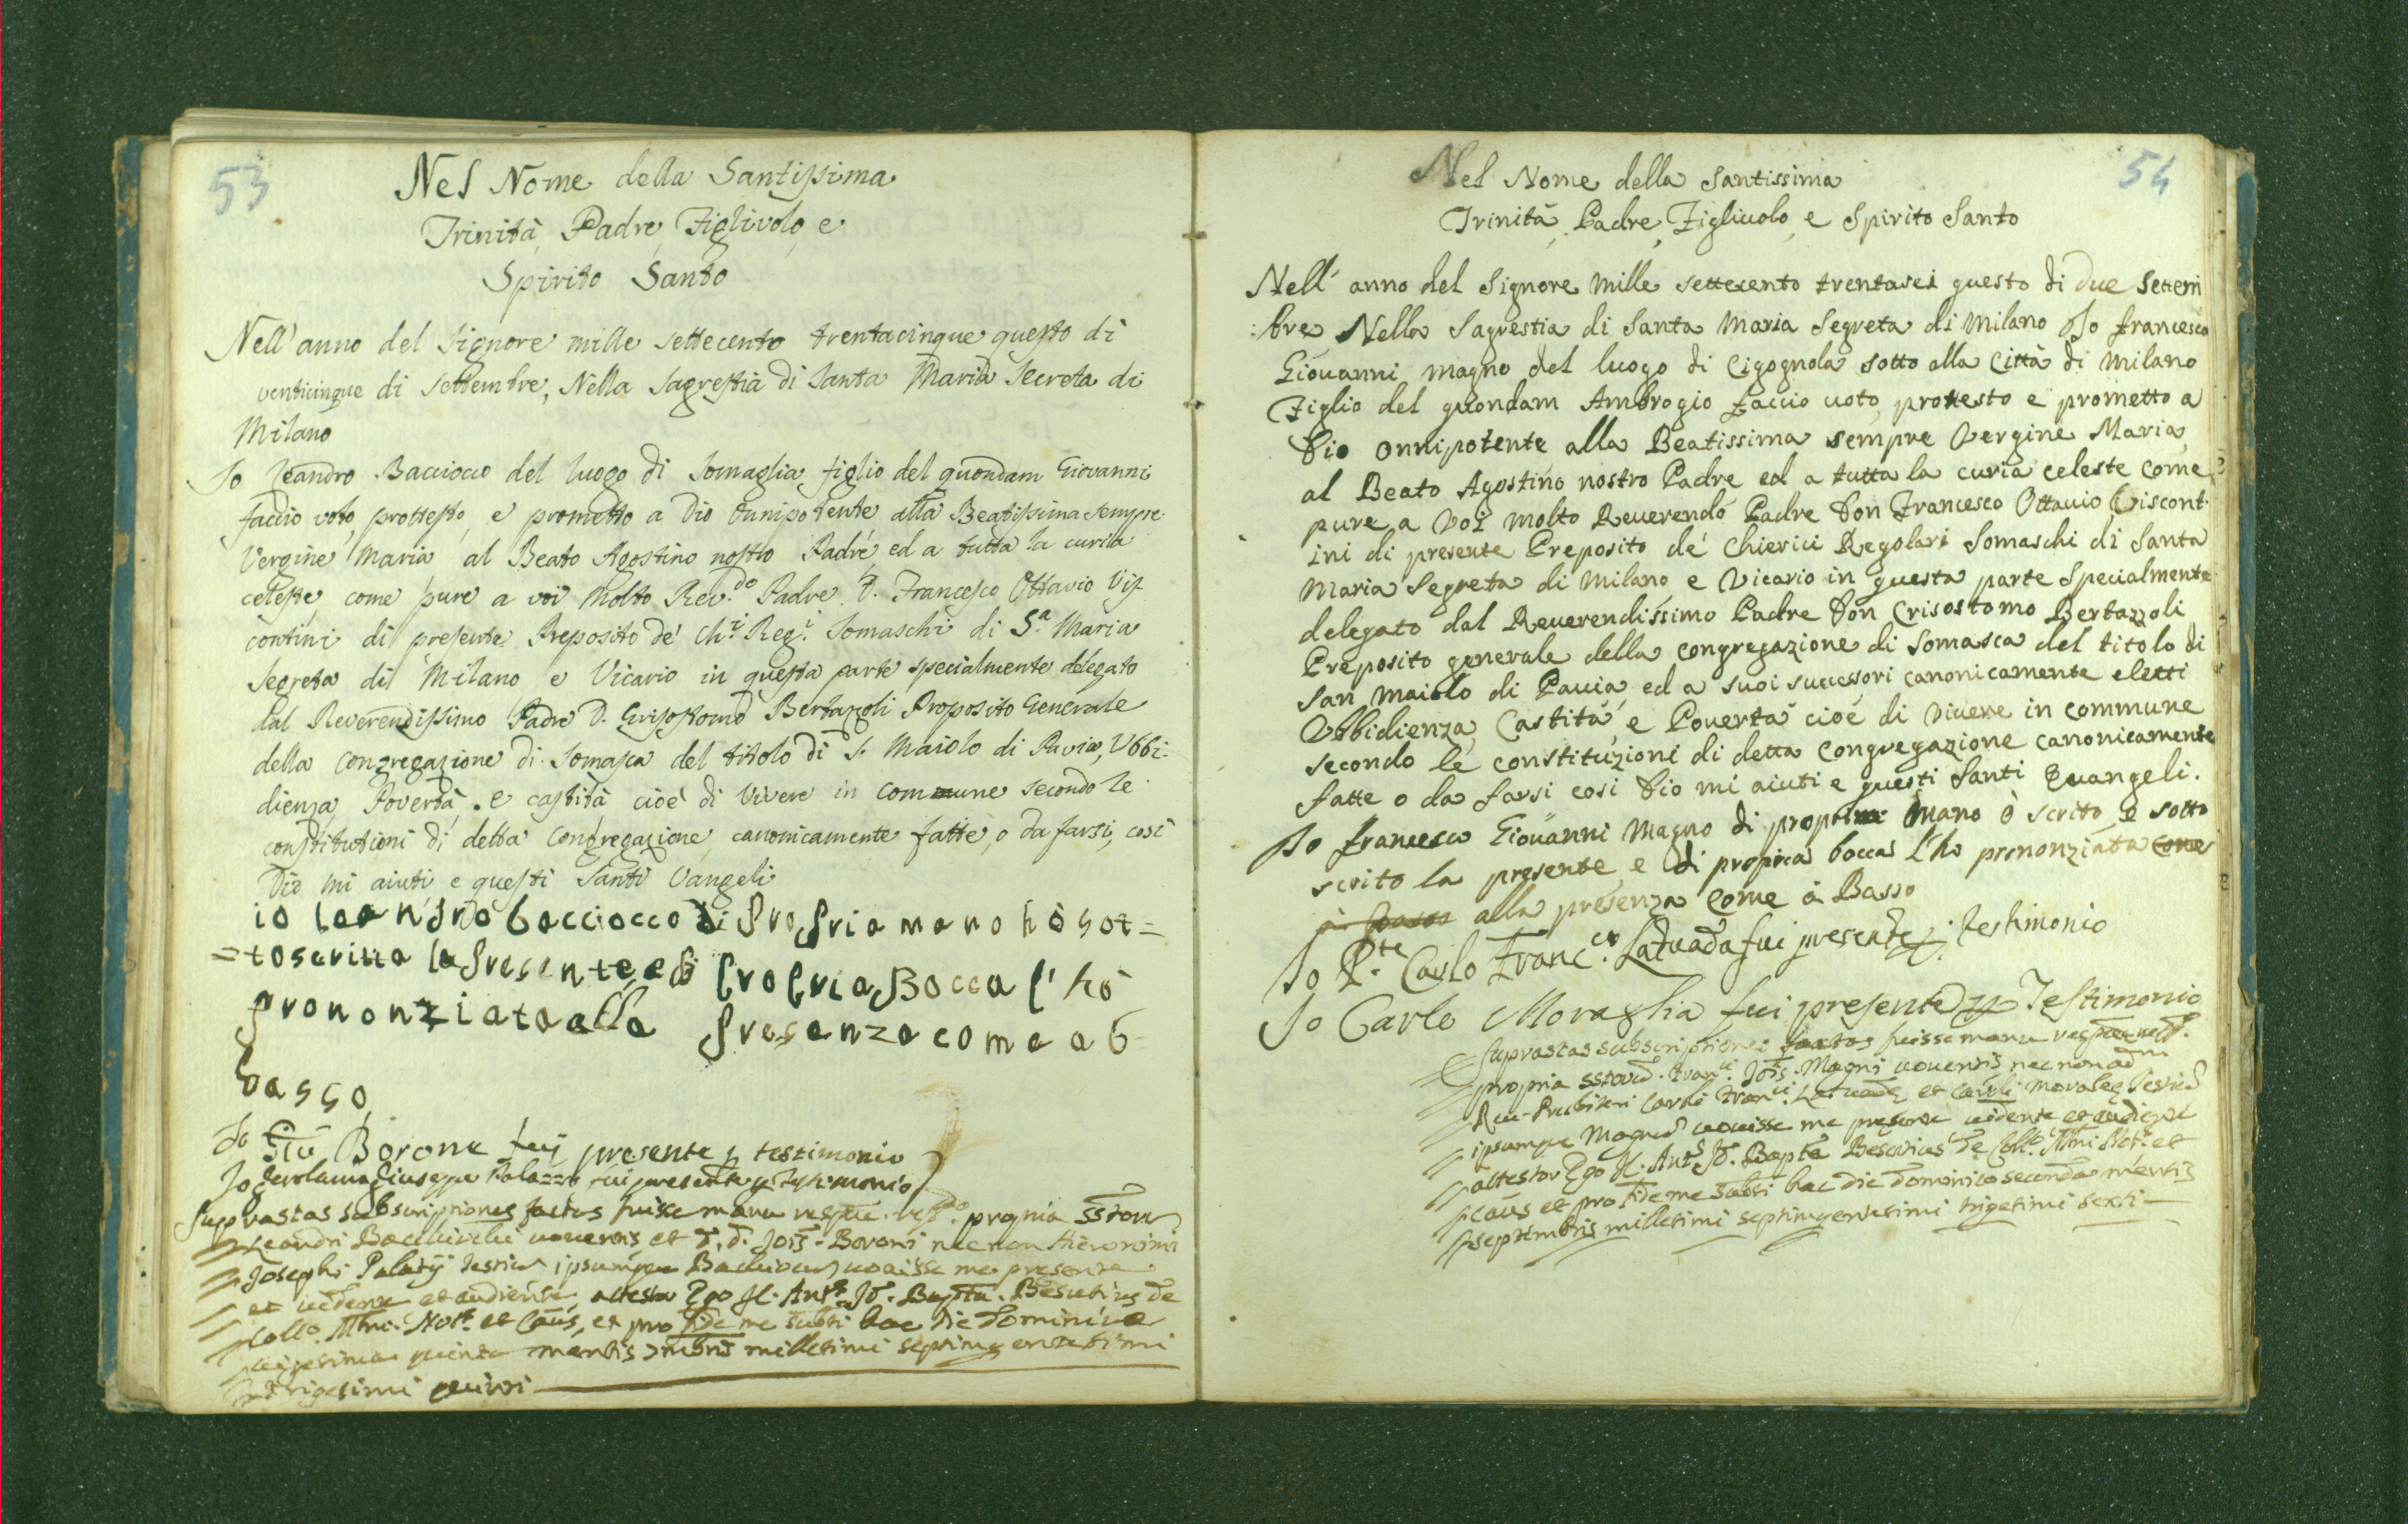 53
Nel Nome della Santissima
Trinità, Padre, Figlivolo, e
Spirito Santo
Nell' anno del Signore mille settecento trentacinque questo dì
venticinque di Settembre, Nella Sagrestia di Santa Maria Secreta di
Milano
Io Leandro Bacciocco del luogo di Somaglia, figlio del quondam Giovanni
faccio voto, prottesto, e prometto a Dio Onnipotente alla Beatissima sempre
Vergine Maria al Beato Agostino nostro Padre, ed a tutta la curia
celeste, come pure a voi Molto Rev.do Padre D. Francesco Ottavio Vis-
contini di presente Preposito de' Ch.i Reg.i Somaschi di S.a Maria
Segreta di Milano, e Vicario in questa parte specialmente delegato
dal Reverendissimo Padre D. Grisostomo Bertazoli Proposito Generale
della Congregazione di Somasca del titolo di S. Maiolo di Pavia, Ubbi-
dienza, Povertà, e castità cioè di vivere in commune secondo le
constitutioni di detta Congregazione, canonicamente fatte, o da farsi, così
Dio mi aiuti e questi Santi Vangeli
io leandro bacciocco di propria mano hò sot=
=toscritta la presente, e di propria Bocca l'hò
prononziata alla presenza come a b
basso
Io Borone fuij presente p testimonio
Io Gerolamo Giuseppe Palazzo fui presente p testimonio
Suprastas subscriptiones factas fuisse manu propria
Leandri voventis et Boroni nec non Hieronimi
Josephi Palatij ipsumque vovisse me presente
et vidente et audiente, attestor Ego Bapta. Besutius de
et pro fide me subsi hac die Dominica
vigesima quinta mensis millesimi septingentesimi
trigesimi quinti
54
Nel Nome della Santissima
Trinità, Padre, Figliuolo, e Spirito Santo
Nell' anno del Signore Mille settecento trentasei questo di due Settem
:bre Nella Sagrestia di Santa Maria Segreta di Milano Io francesco
Giouanni magno del luogo di Cigognola sotto alla Città di Milano
Figlio del quondam Ambrogio faccio uoto, protesto e prometto a
Dio onnipotente alla Beatissima sempre Vergine Maria,
al Beato Agostino nostro Padre ed a tutta la curia celeste come
pure a Voi molto Reuerendo Padre Don Francesco Ottauio Viscont-
ini di presente Preposito de' Chierici Regolari Somaschi di Santa
Maria Segreta di Milano, e Vicario in questa parte Specialmente
delegato dal Reuerendissimo Padre Don Crisostomo Bertazzoli
Preposito generale della congregazione di Somasca del titolo di
San Maiolo di Pauia, ed a suoi successori canonicamente eletti
Vbbidienza, Castità, e Pouertà cioè di viuere in commune
secondo le constituzioni di detta congregazione canonicamente
fatte o da farsi così Dio mi aiuti e questi Santi Euangeli.
Io francesco Giouanni Magno di propria Mano ò scrito, e sotto
scrito la presente, e di propria bocca l'ho prononziata come
alla presenza come a Basso
Io P.te Carlo Franc.co Laduada fui presente p. testimonio
Io Carlo Moraglia fui presente p Testimonio
Suprastas subscriptiones factas fuisse manu
propria Magni uouentis nec non
Carli et Caroli
ipsumque Magnum vouisse me presente uidente et audiente
attestor Ego Bapta Besutius de
et pro fide me subsi hac die Dominico secunda mensis
septembris millesimi septingentesimi trigesimi sexti